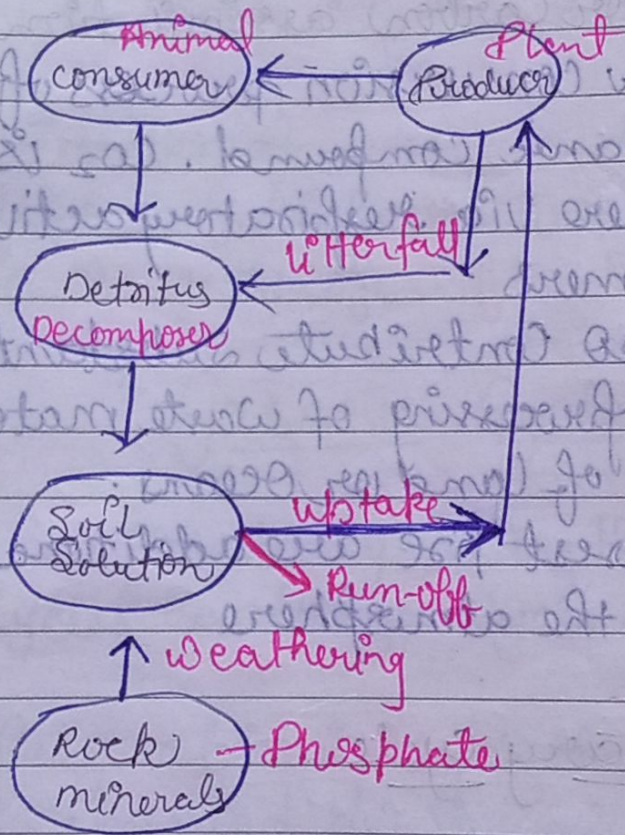 Animal
consumer
Plant
Producer
Litterfall
Detritus
Decomposer
Soil
Solution
uptake
Run-off
Weathering
Rock
minerals
Phosphate